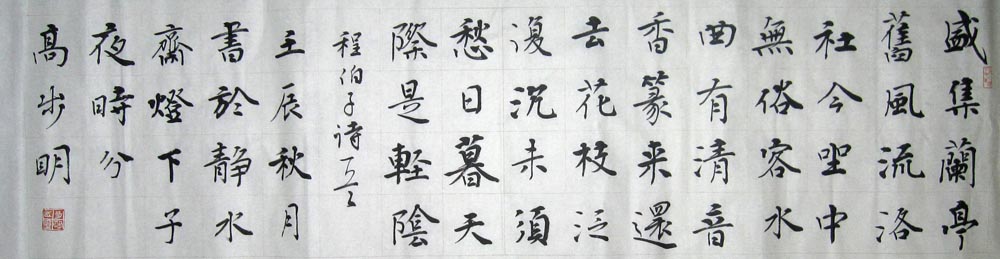 盛集蘭亭
舊風流洛
社今坐中
無俗客水
曲有清音
香篆来還
去花枝泛
復沉未須
愁日暮天
際是軽陰
程伯子诗一首
壬辰秋月
書於静水
齋燈下子
夜時分
高步明